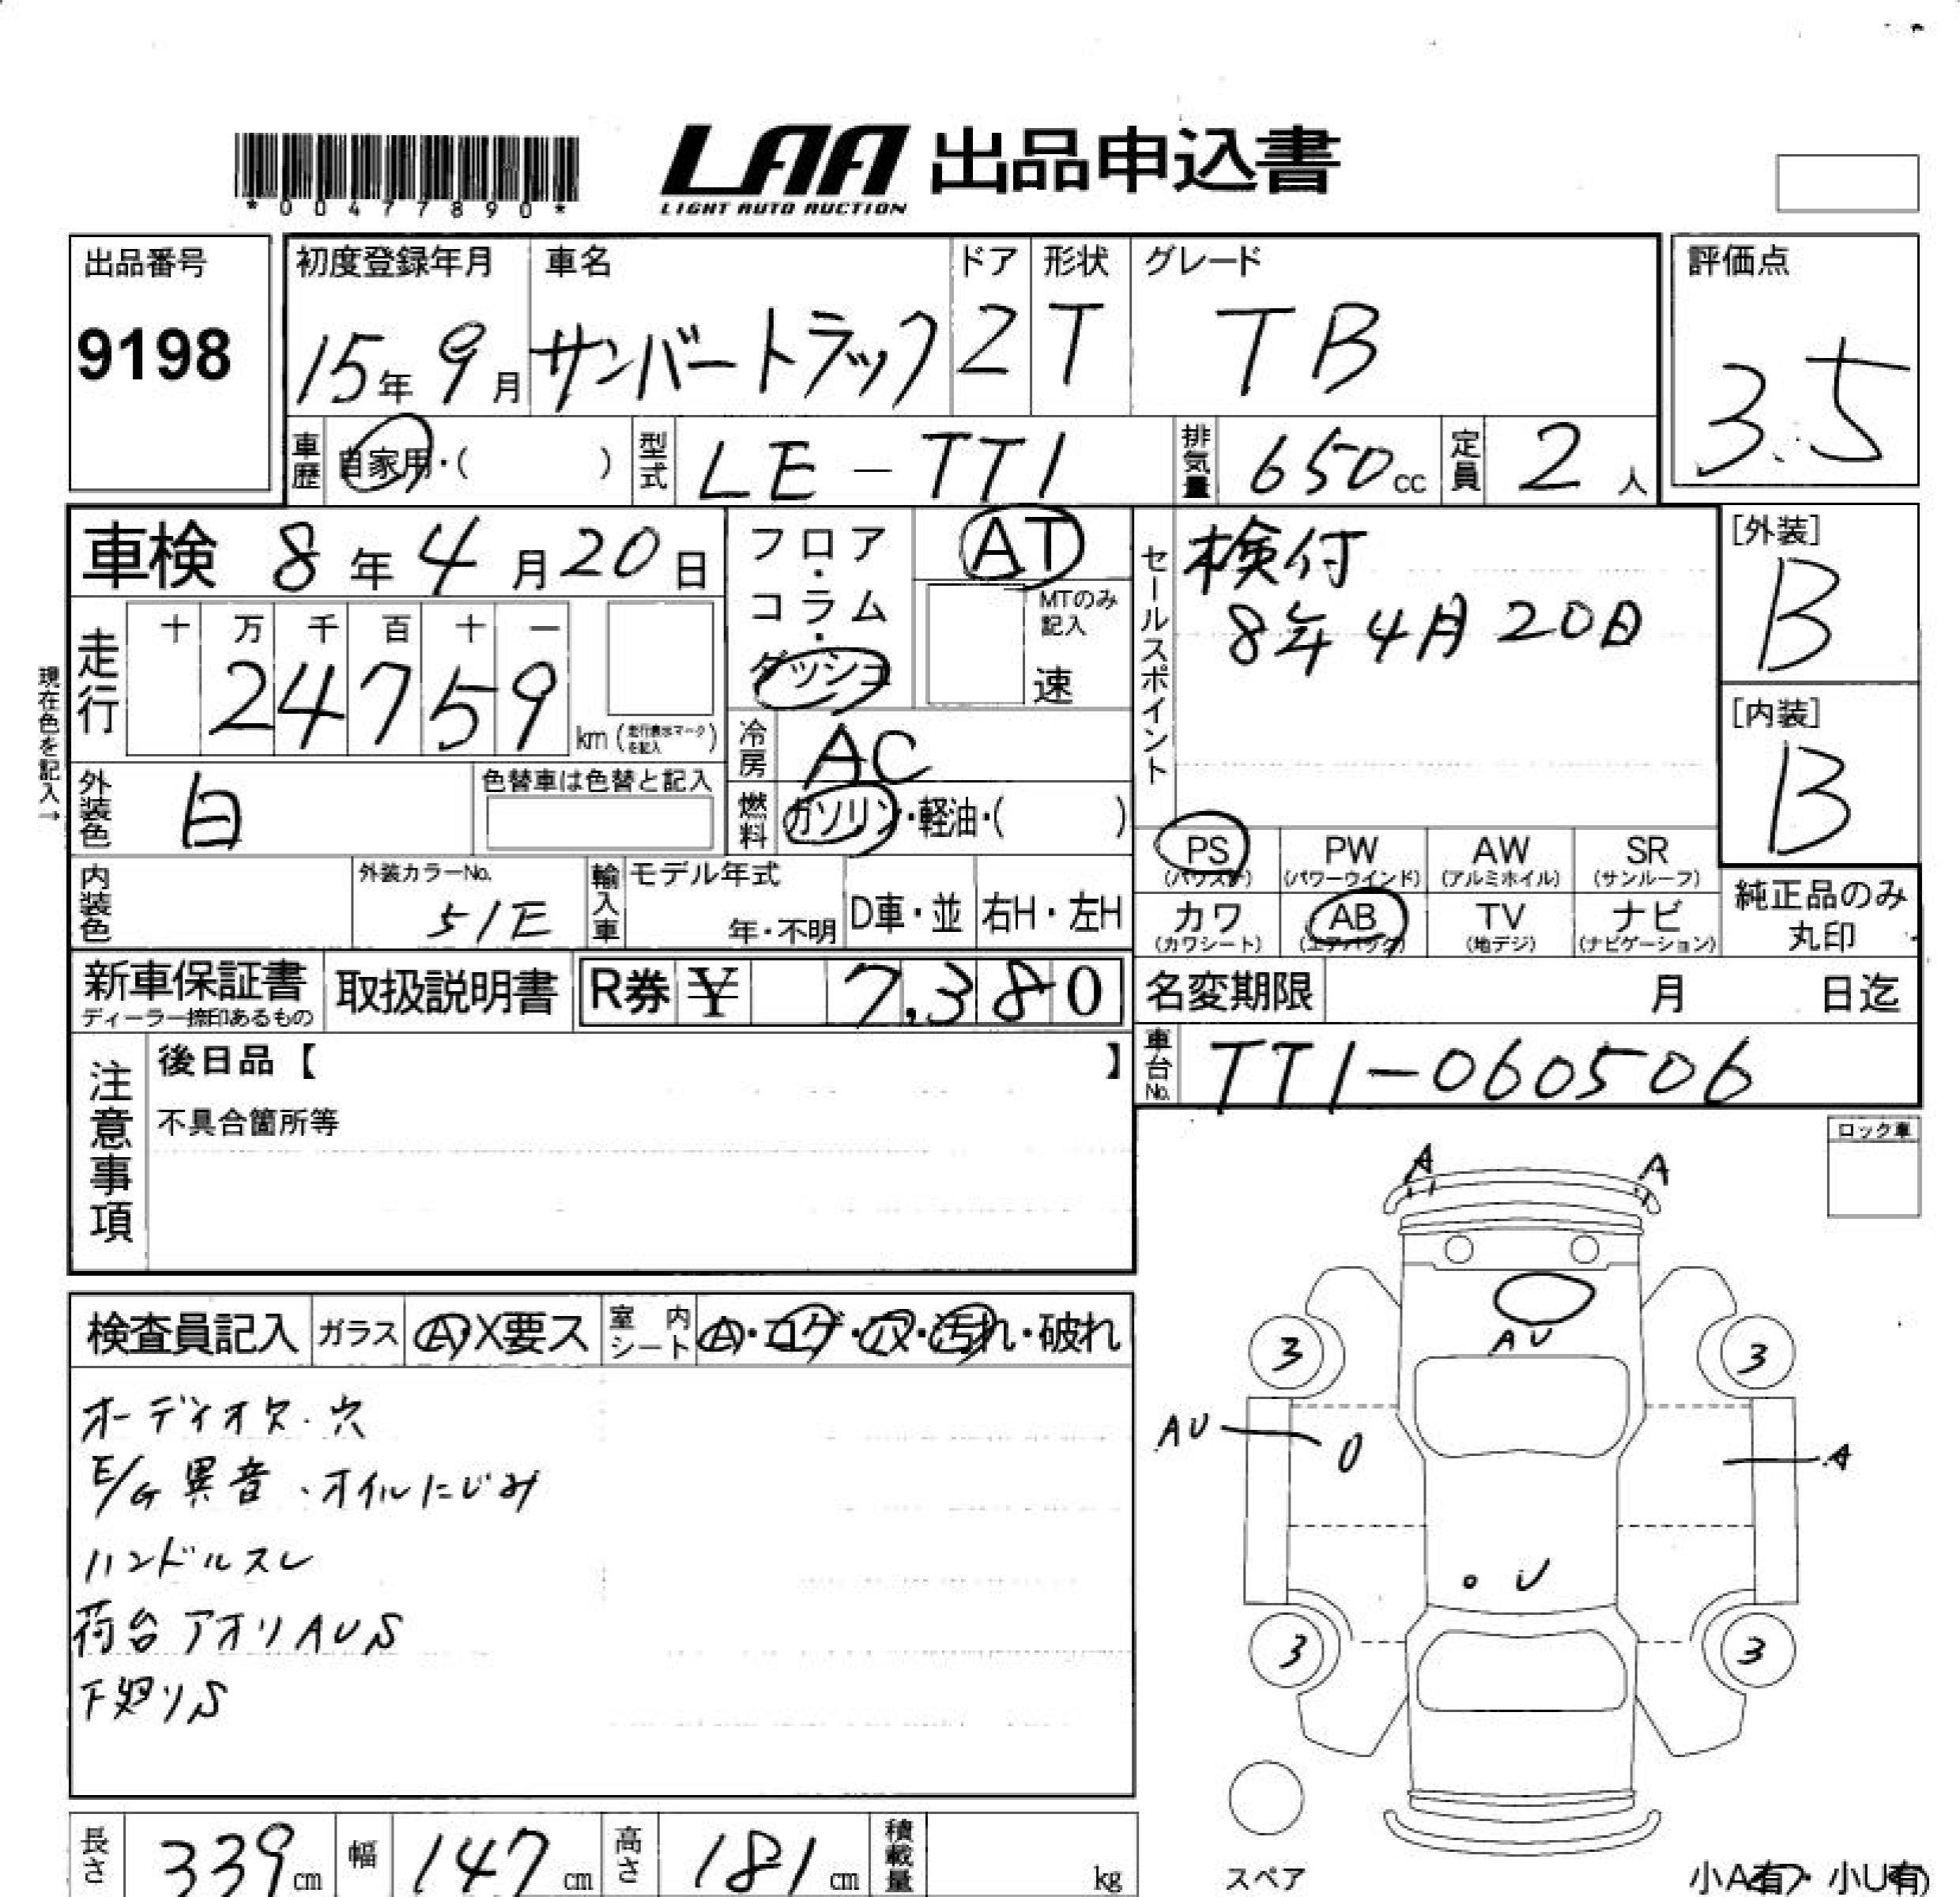 *00477890*
LAA 出品申込書
LIGHT AUTO AUCTION
出品番号
9198
初度登録年月
15年 9月
車名
サンバートラック
ドア
2
形状
T
グレード
TB
評価点
3.5
車歴
自家用・( )
型式
LE-TT1
排気量
650cc
定員
2人
車検 8年4月20日
現在色を記入→
走行
十 万 千 百 十 一
24759
km (走行表示マークを記入)
フロア・コラム・ダッシュ
AT
MTのみ記入
速
セールスポイント
検付
8年4月20日
[外装]
B
[内装]
B
外装色
白
色替車は色替と記入
冷房
AC
燃料
ガソリン・軽油・( )
PS
(パワステ)
PW
(パワーウインド)
AW
(アルミホイル)
SR
(サンルーフ)
内装色
外装カラーNo.
51E
輸入車
モデル年式
年・不明
D車・並
右H・左H
カワ
(カワシート)
AB
(エアバック)
TV
(地デジ)
ナビ
(ナビゲーション)
純正品のみ
丸印
新車保証書
ディーラー捺印あるもの
取扱説明書
R券 ¥ 7,380
名変期限 月 日迄
車台No.
TT1-060506
注意事項
後日品【 】
不具合箇所等
ロック車
検査員記入
ガラス
A・X要ス
室内シート
A・コゲ・穴・汚れ・破れ
オーディオ欠・穴
E/G異音・オイルにじみ
ハンドルスレ
荷台アオリAUS
下廻りS
A
A
AU
3
3
AU
A
U
3
3
スペア
長さ
339cm
幅
147cm
高さ
181cm
積載量
kg
小A有・小U有